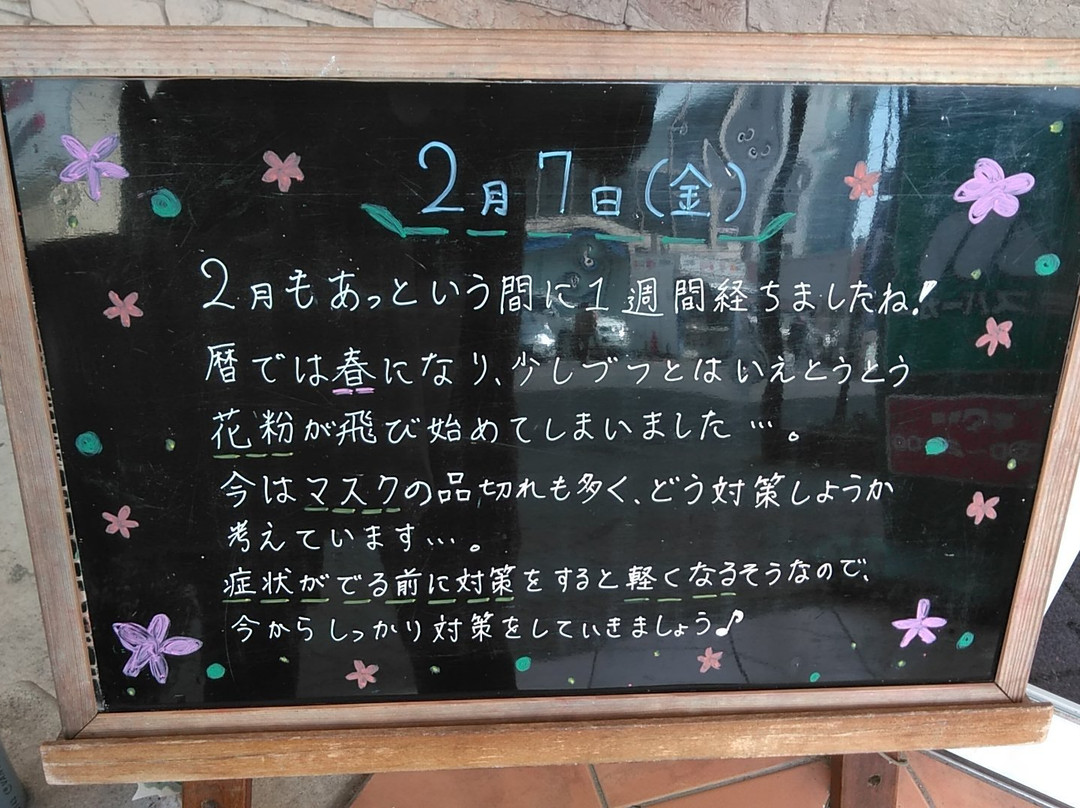 2月7日(金)
2月もあっという間に1週間経ちましたね!
暦では春になり、少しづつとはいえとうとう
花粉が飛び始めてしまいました…。
今はマスクの品切れも多く、どう対策しようか
考えています…。
症状がでる前に対策をすると軽くなるそうなので、
今からしっかり対策をしていきましょう♪